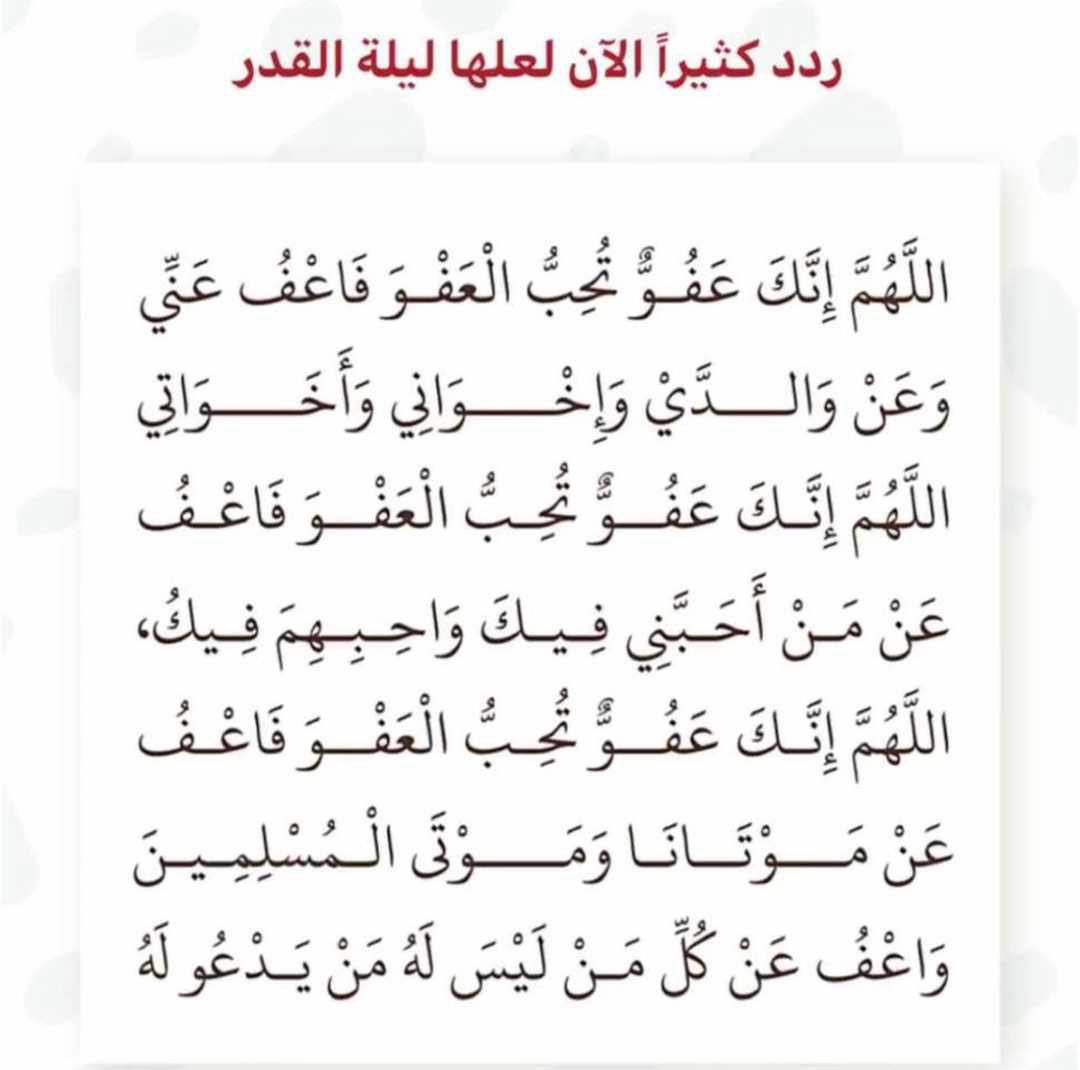 ردد كثيراً الآن لعلها ليلة القدر
اللَّهُمَّ إِنَّكَ عَفُوٌّ تُحِبُّ الْعَفْوَ فَاعْفُ عَنِّي
وَعَنْ وَالدَّيْ وَإِخْوَانِي وَأَخَوَاتِي
اللَّهُمَّ إِنَّكَ عَفُوٌّ تُحِبُّ الْعَفْوَ فَاعْفُ
عَنْ مَنْ أَحَبَّنِي فِيكَ وَاحِبِهِمَ فِيكُ،
اللَّهُمَّ إِنَّكَ عَفُوٌّ تُحِبُّ الْعَفْوَ فَاعْفُ
عَنْ مَوْتَانَا وَمَوْتَى الْمُسْلِمِينَ
وَاعْفُ عَنْ كُلِّ مَنْ لَيْسَ لَهُ مَنْ يَدْعُو لَهُ